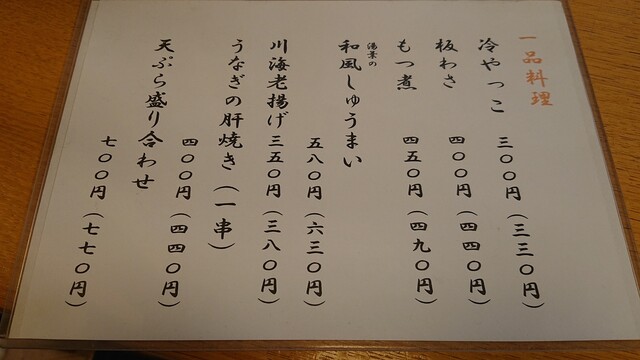 一品料理
冷やっこ 三〇〇円(三三〇円)
板わさ 四〇〇円(四四〇円)
もつ煮 四五〇円(四九〇円)
湯葉の
和風しゅうまい 五八〇円(六三〇円)
川海老揚げ 三五〇円(三八〇円)
うなぎの肝焼き(一串)
四〇〇円(四四〇円)
天ぷら盛り合わせ
七〇〇円(七七〇円)